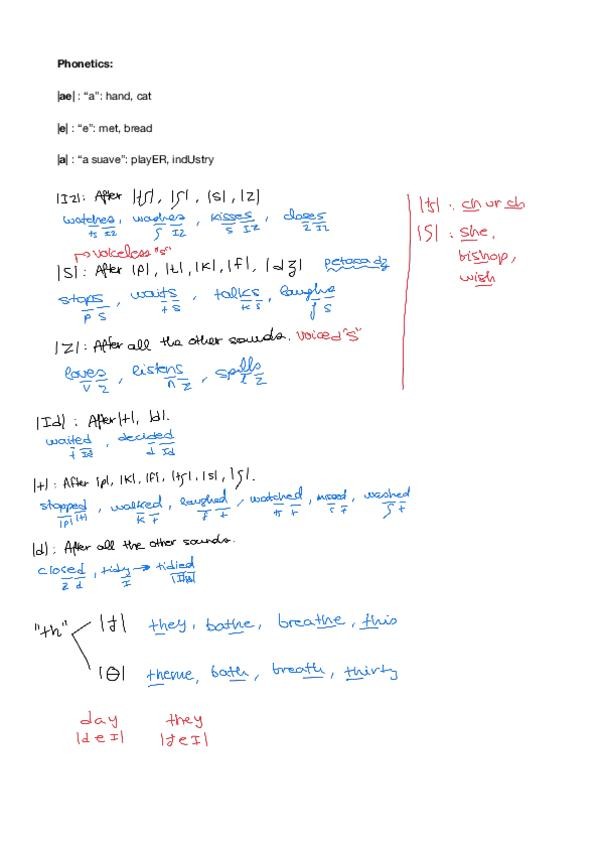 Phonetics:
|ae| : “a”: hand, cat
|e| : “e”: met, bread
|a| : “a suave”: playER, indUstry
|Iz|: After |tʃ|, |ʃ|, |s|, |z|
watches, washes, kisses, closes
tʃ Iz ʃ Iz s Iz z Iz
→ voiceless "s"
|s|: After |p|, |t|, |k|, |f|, |dʒ| petaca dz
stops, waits, talks, laughs
p s t s k s f s
|z|: After all the other sounds. voiced "s"
loves, listens, spills
v z n z l z
|tʃ| : ch or sh
|ʃ| : she,
bishop,
wish
|Id| : After |t|, |d|.
waited, decided
t Id d Id
|t|: After |p|, |k|, |f|, |tʃ|, |s|, |ʃ|.
stopped, walked, laughed, watched, missed, washed
|p| |t| k t f t tʃ t s t ʃ t
|d|: After all the other sounds.
closed, tidy → tidied
z d I |Id|
"th"
|ɟ| they, bathe, breathe, this
|θ| theme, bath, breath, thirty
day they
|d e I| |ɟ e I|